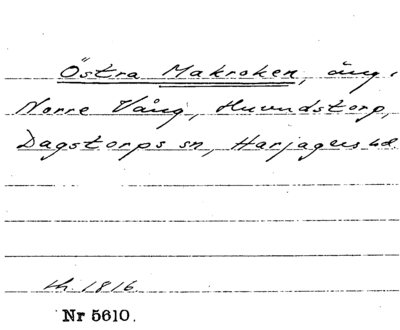 Östra Makroken, äng i
Norre Vång, Huvudstorp,
Dagstorps sn, Harjagers hd
th. 1816
Nr 5610.